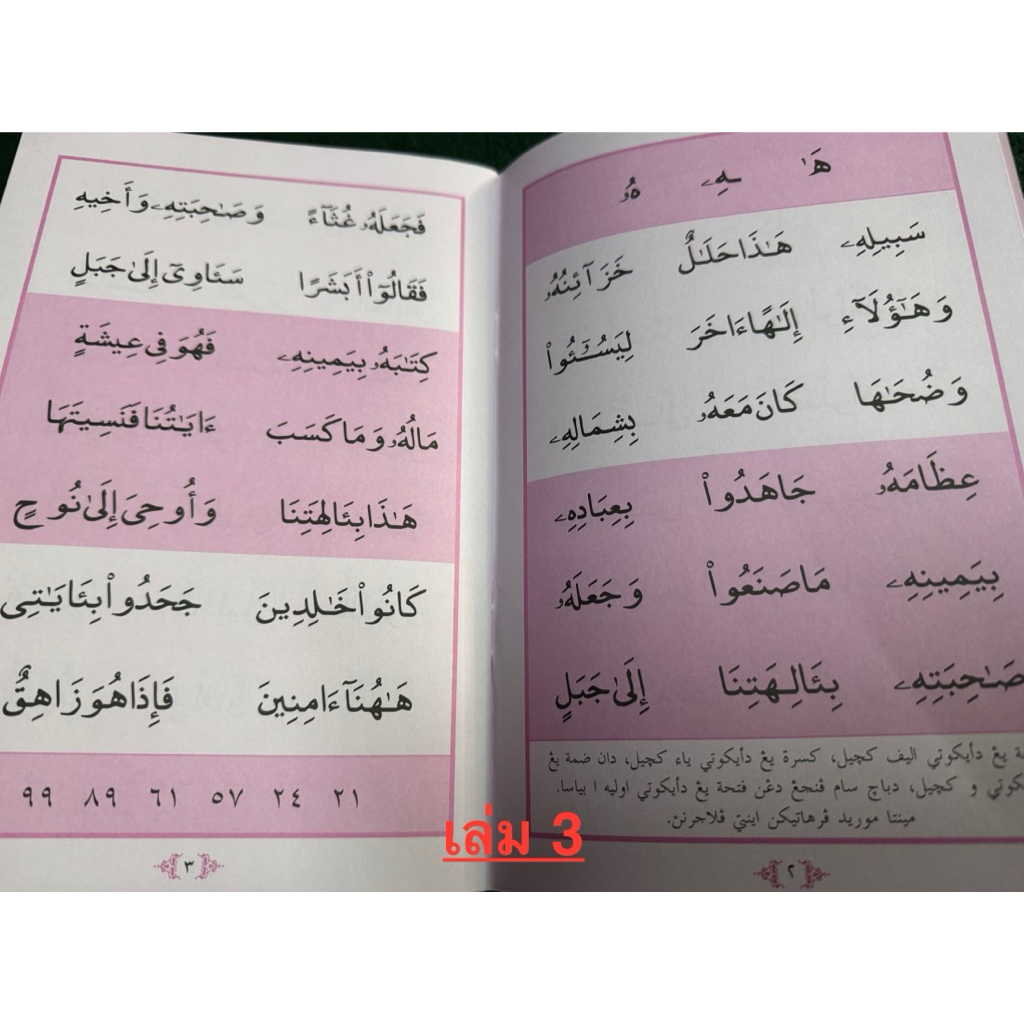 هَٰ هِۦ هُۥ
سَبِيلِهِۦ هَٰذَا حَلَٰلٌ خَزَآئِنُهُۥ
وَهَٰٓؤُلَآءِ إِلَٰهًا ءَاخَرَ لِيَسُۥٓـُٔوا۟
وَضُحَىٰهَا كَانَ مَعَهُۥ بِشِمَالِهِۦ
عِظَامَهُۥ جَاهَدُوا۟ بِعِبَادِهِۦ
بِيَمِينِهِۦ مَا صَنَعُوا۟ وَجَعَلَهُۥ
صَٰحِبَتِهِۦ بِـَٔالِهَتِنَا إِلَىٰ جَبَلٍ
يڠ دأيكوتي اليف كچيل، كسرة يڠ دأيكوتي ياء كچيل، دان ضمة يڠ
و كچيل، دباچ سام ڤنجڠ دڠن فتحة يڠ دأيكوتي اوليه ا بياسا.
مينتا موريد ڤرهاتيكن اينتي ڤلاجرنڽ.
٢
فَجَعَلَهُۥ غُثَآءً وَصَٰحِبَتِهِۦ وَأَخِيهِ
فَقَالُوٓا۟ أَبَشَرًا سَـَٔاوِىٓ إِلَىٰ جَبَلٍ
كِتَٰبَهُۥ بِيَمِينِهِۦ فَهُوَ فِى عِيشَةٍ
مَالُهُۥ وَمَا كَسَبَ ءَايَٰتُنَا فَنَسِيتَهَا
هَٰذَا بِـَٔالِهَتِنَا وَأُوحِىَ إِلَىٰ نُوحٍ
كَانُوا۟ خَٰلِدِينَ جَحَدُوا۟ بِـَٔايَٰتِى
هَٰهُنَآ ءَامِنِينَ فَإِذَا هُوَ زَاهِقٌ
٢١ ٢٤ ٥٧ ٦١ ٨٩ ٩٩
٣
เล่ม 3